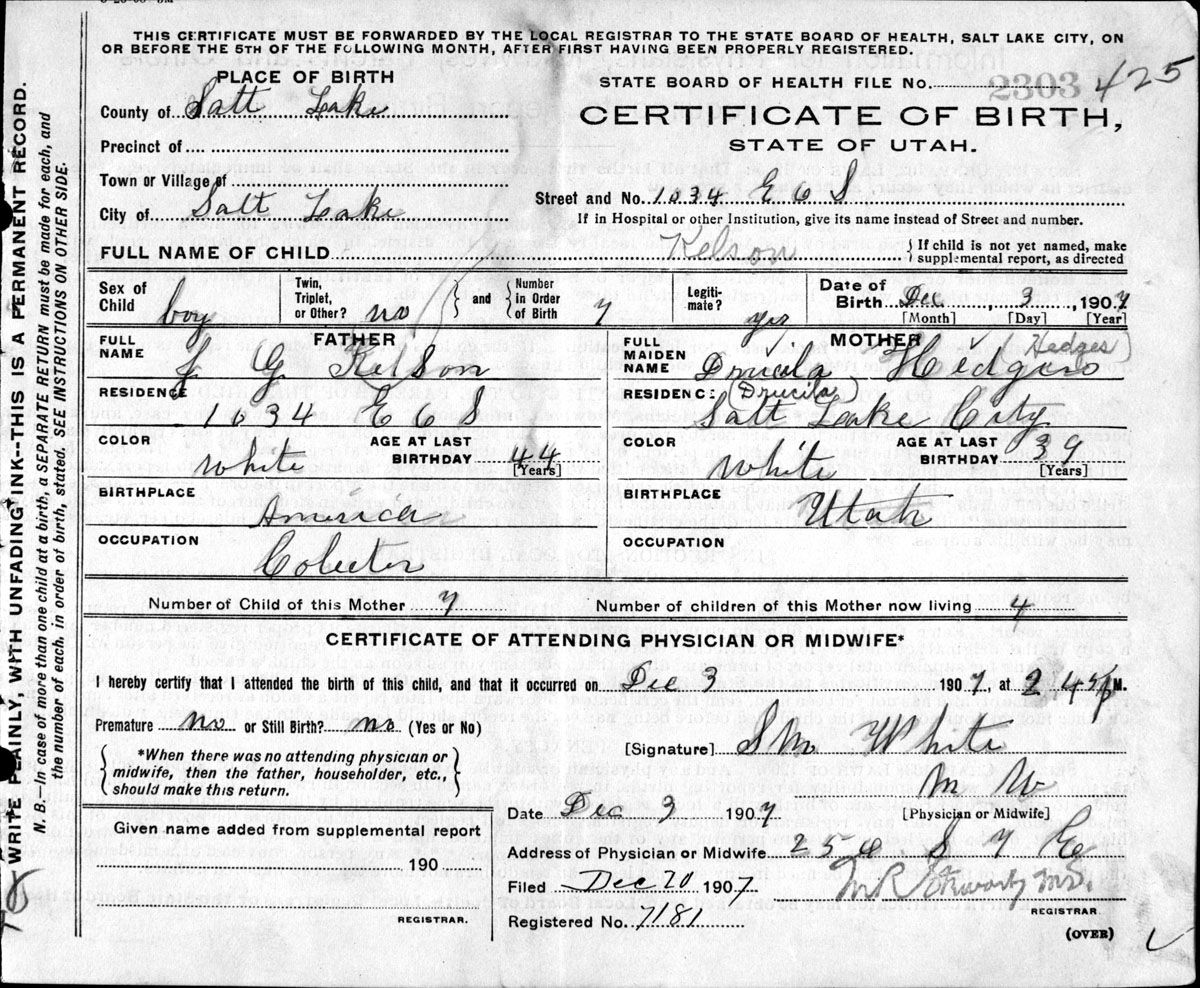 THIS CERTIFICATE MUST BE FORWARDED BY THE LOCAL REGISTRAR TO THE STATE BOARD OF HEALTH, SALT LAKE CITY, ON
OR BEFORE THE 5TH OF THE FOLLOWING MONTH, AFTER FIRST HAVING BEEN PROPERLY REGISTERED.
PLACE OF BIRTH
STATE BOARD OF HEALTH FILE No. 2303 425
County of Salt Lake
CERTIFICATE OF BIRTH,
STATE OF UTAH.
Precinct of
Town or Village of
Street and No. 1034 E 6 S
City of Salt Lake
If in Hospital or other Institution, give its name instead of Street and number.
FULL NAME OF CHILD Kelson { If child is not yet named, make
supplemental report, as directed
Sex of Child boy
Twin, Triplet, or Other? no } and { Number in Order of Birth 7
Legitimate? yes
Date of Birth Dec 3, 1907
[Month] [Day] [Year]
FATHER
FULL NAME J G Kelson
RESIDENCE 1034 E 6 S
COLOR White
AGE AT LAST BIRTHDAY 44 [Years]
BIRTHPLACE America
OCCUPATION Colector
MOTHER
FULL MAIDEN NAME Drucila Hedges
(Hedges)
(Drucila)
RESIDENCE Salt Lake City
COLOR White
AGE AT LAST BIRTHDAY 39 [Years]
BIRTHPLACE Utah
OCCUPATION
Number of Child of this Mother 7 Number of children of this Mother now living 4
CERTIFICATE OF ATTENDING PHYSICIAN OR MIDWIFE*
I hereby certify that I attended the birth of this child, and that it occurred on Dec 3 1907, at 2 45 M.
Premature no or Still Birth? no (Yes or No)
{ *When there was no attending physician or
midwife, then the father, householder, etc.,
should make this return. }
[Signature] S M White
M W
[Physician or Midwife]
Date Dec 3 1907
Given name added from supplemental report
190
REGISTRAR.
Address of Physician or Midwife 254 S 7 E
Filed Dec 20 1907
M.D.
REGISTRAR
Registered No. 7181
(OVER)
WRITE PLAINLY, WITH UNFADING INK--THIS IS A PERMANENT RECORD.
N. B.—In case of more than one child at a birth, a SEPARATE RETURN must be made for each, and
the number of each, in order of birth, stated. SEE INSTRUCTIONS ON OTHER SIDE.